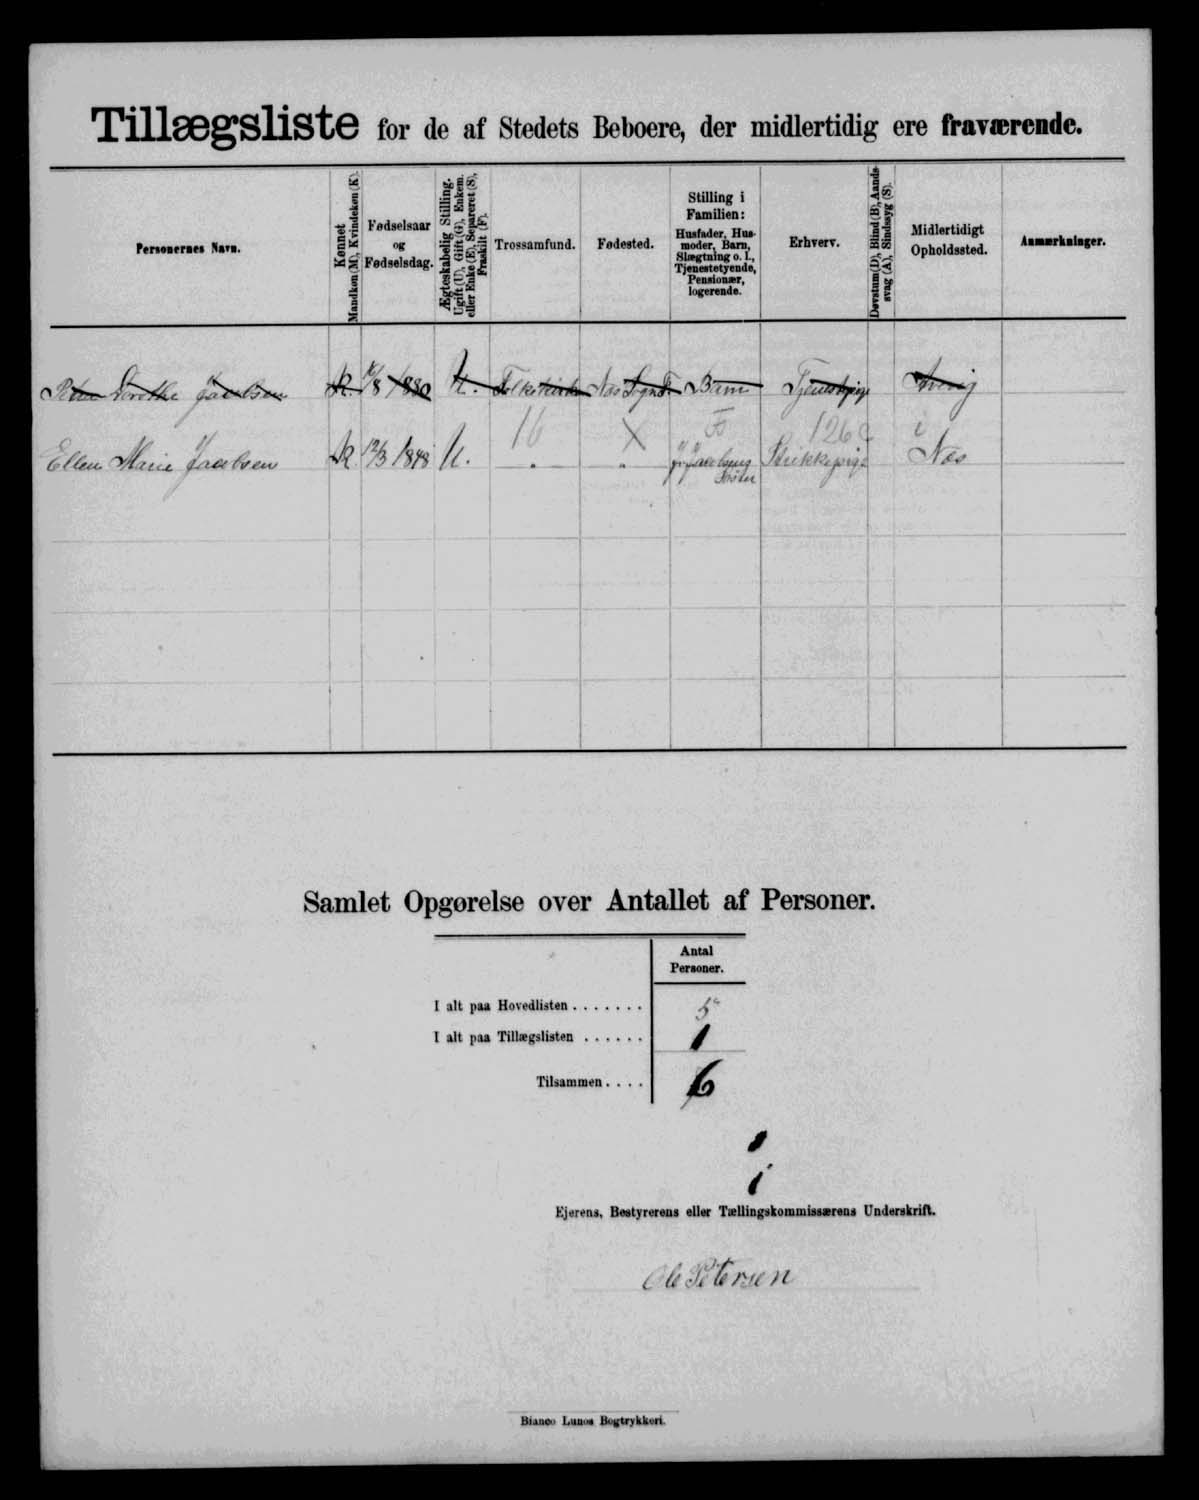 Tillægsliste for de af Stedets Beboere, der midlertidig ere fraværende.
Personernes Navn.
Kønnet
Mandkøn (M), Kvindekøn (K).
Fødselsaar
og
Fødselsdag.
Ægteskabelig Stilling.
Ugift (U), Gift (G), Enkem.
eller Enke (E), Separeret (S),
Fraskilt (F).
Trossamfund.
Fødested.
Stilling i
Familien:
Husfader, Hus-
moder, Barn,
Slægtning o. l.,
Tjenestetyende,
Pensionær,
logerende.
Erhverv.
Døvstum (D), Blind (B), Aands-
svag (A), Sindssyg (S).
Midlertidigt
Opholdssted.
Anmærkninger.
Dorthe Jacobsen K. 1880 U. Folkekirken Næs Sogn Barn Tjenestepige
16 X 126
Ellen Marie Jacobsen K 12/3 1848 U. " " Jacobsens Strikkepige Næs
Søster
Samlet Opgørelse over Antallet af Personer.
Antal
Personer.
I alt paa Hovedlisten ....... 5
I alt paa Tillægslisten ...... 1
Tilsammen .... 6
Ejerens, Bestyrerens eller Tællingskommissærens Underskrift.
Ole Petersen
Bianco Lunos Bogtrykkeri.